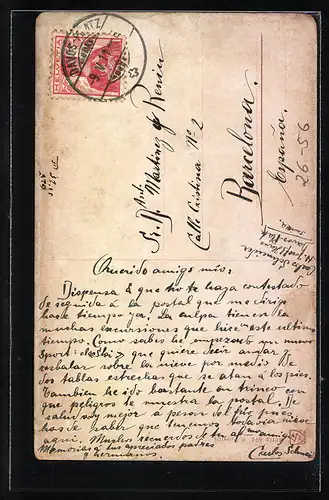 HELVETIA
DAVOS-PLATZ
26-56
Sr. D. Ant. Martinez y Reniu
Calle Cristina Nº 2
Barcelona.
España.
Carlos Schneider
Davos-Platz
Querido amigo mío:
Dispensa que no te haya contestado
de seguida á la postal que me dirigi
hace tiempo ya. La culpa tienen las
muchas excursiones que hice este ultimo
tiempo. Como sabes he empezado un nuevo
Sport: que quiere decir andar
resbalar sobre la nieve por medio de
dos tablas estrechas que se atan á los pies.
Tambien he ido bastante en trineo con
que peligros te muestra la postal. De
salud soy mejor á pesar del frío pues
has de saber que tenemos todavía nieve
aqui. Muchos recuerdos de tu amigo
Memorias á tus apreciados padres
y hermanos. Carlos Schneider